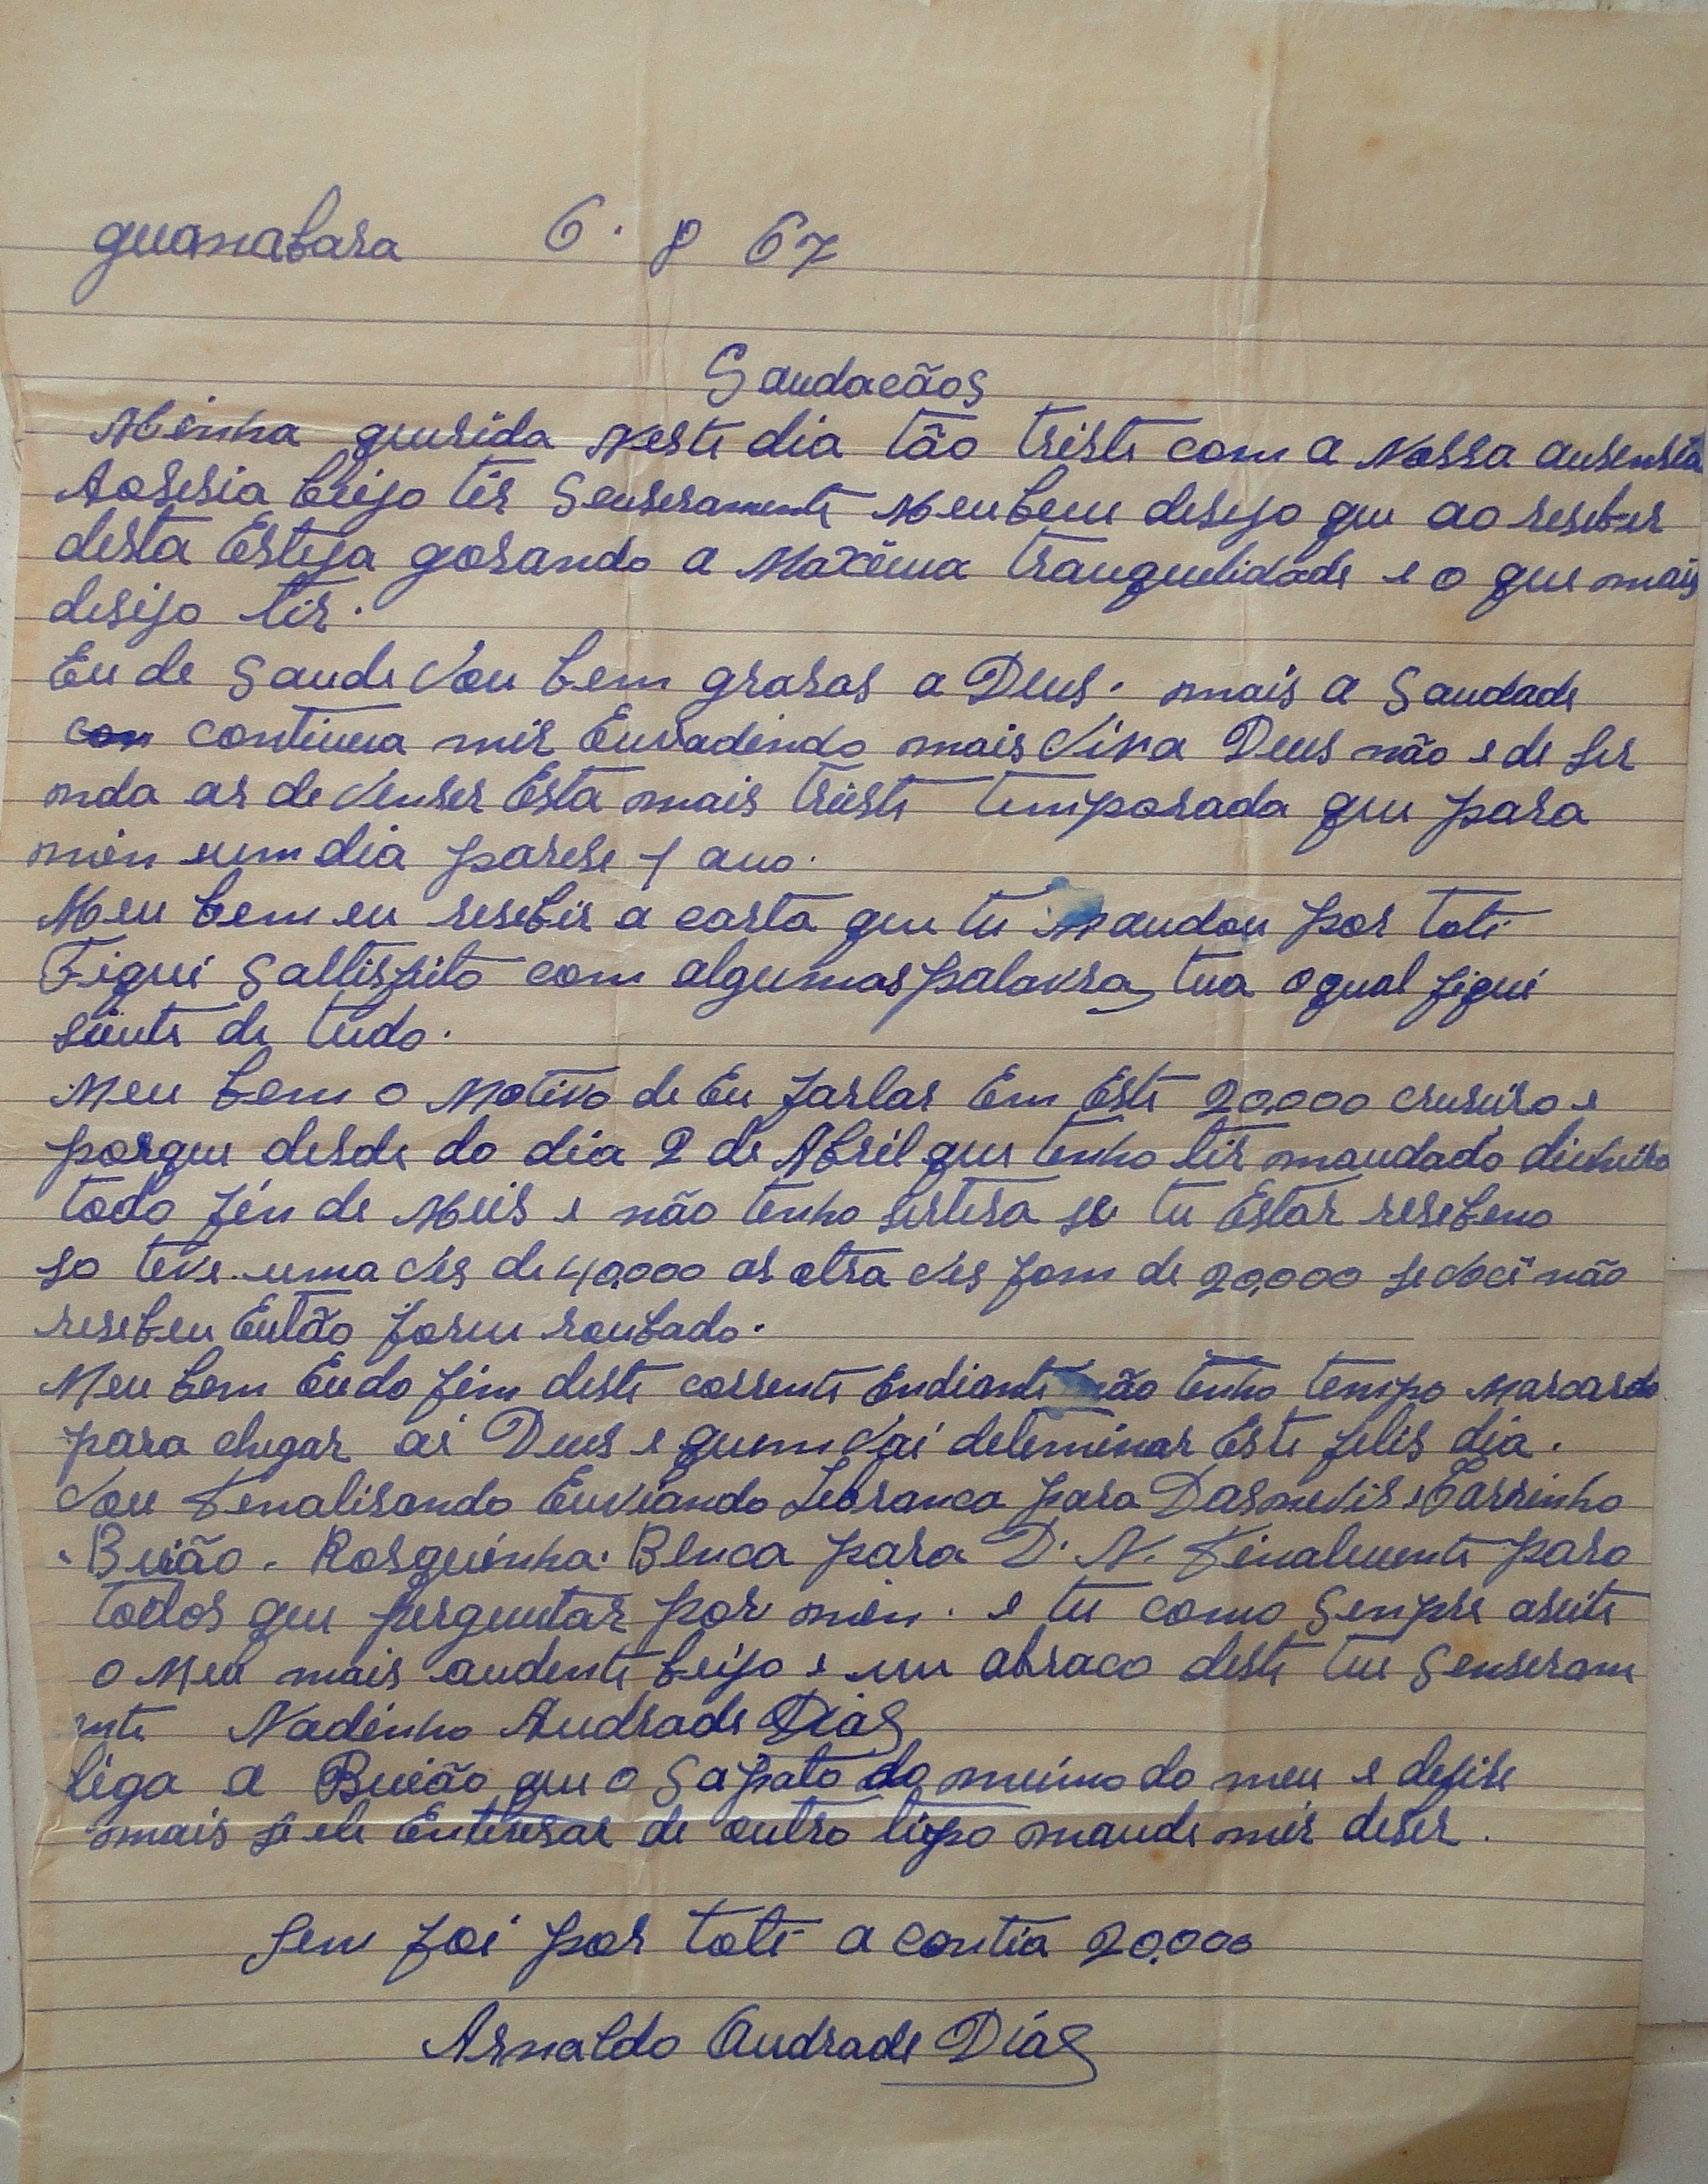 guanabara 6. 8 67
Saudacãos
Minha querida Neste dia tão triste com a Nossa ausensia
Aosesia beijo tir Senseramente Meu bem desejo que ao reseber
desta Esteja gosando a Maxima tranquelidade e o que mais
desejo tir.
Eu de Saude Vou bem grasas a Deus. mais a Saudade
continua mir Envadindo mais Viva Deus não e de ser
nada as de Venser Esta mais triste temporada que para
min um dia parese 1 ano.
Meu bem eu resebir a carta que tu Mandou por toti
Fiqui Sattisfeito com algumas palavra tua o qual fiqui
siente de tudo.
Meu bem o Motivo de Eu farlar Em Este 20.000 cruseiro e
porque desde do dia 2 de Abril que tenho tir mandado dinheiro
todo fin de Meis e não tenho serteza se tu Estar resebeno
so teve uma Ves de 40.000 as otra Ves fom de 20.000 se Você não
resebeu Então foreu roubado.
Meu bem Eu do fim deste corrente Endiante não tenho tempo Marcardo
para chegar ai Deus e quem Vai deteminar Este felis dia.
Vou Finalisando Enviando Lebranca para Dasnevir e Carrinho
. Buião. Rosquinha. Benca para D. N. Finalmente para
todos que perguntar por min. e tu como Senpre aseite
o Meu mais audente beijo e um abraco deste tue Senseram
nte Nadinho Andrade Dias
liga a Buião que o Sapato do mesmo do meu e defise
mais se ele Enteresar de outro tipo mande mir deser.
Sem foi por toti a contia 20.000
Arnaldo Andrade Dias